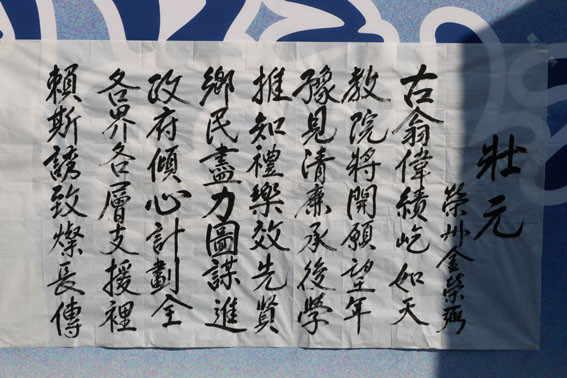 壯元
榮州金榮
古翁偉績屹如天
教院將開願望年
豫見清廉承後學
推知禮樂效先賢
鄉民盡力圖謀進
政府傾心計劃全
各界各層支援裡
賴斯誘致燦長傳